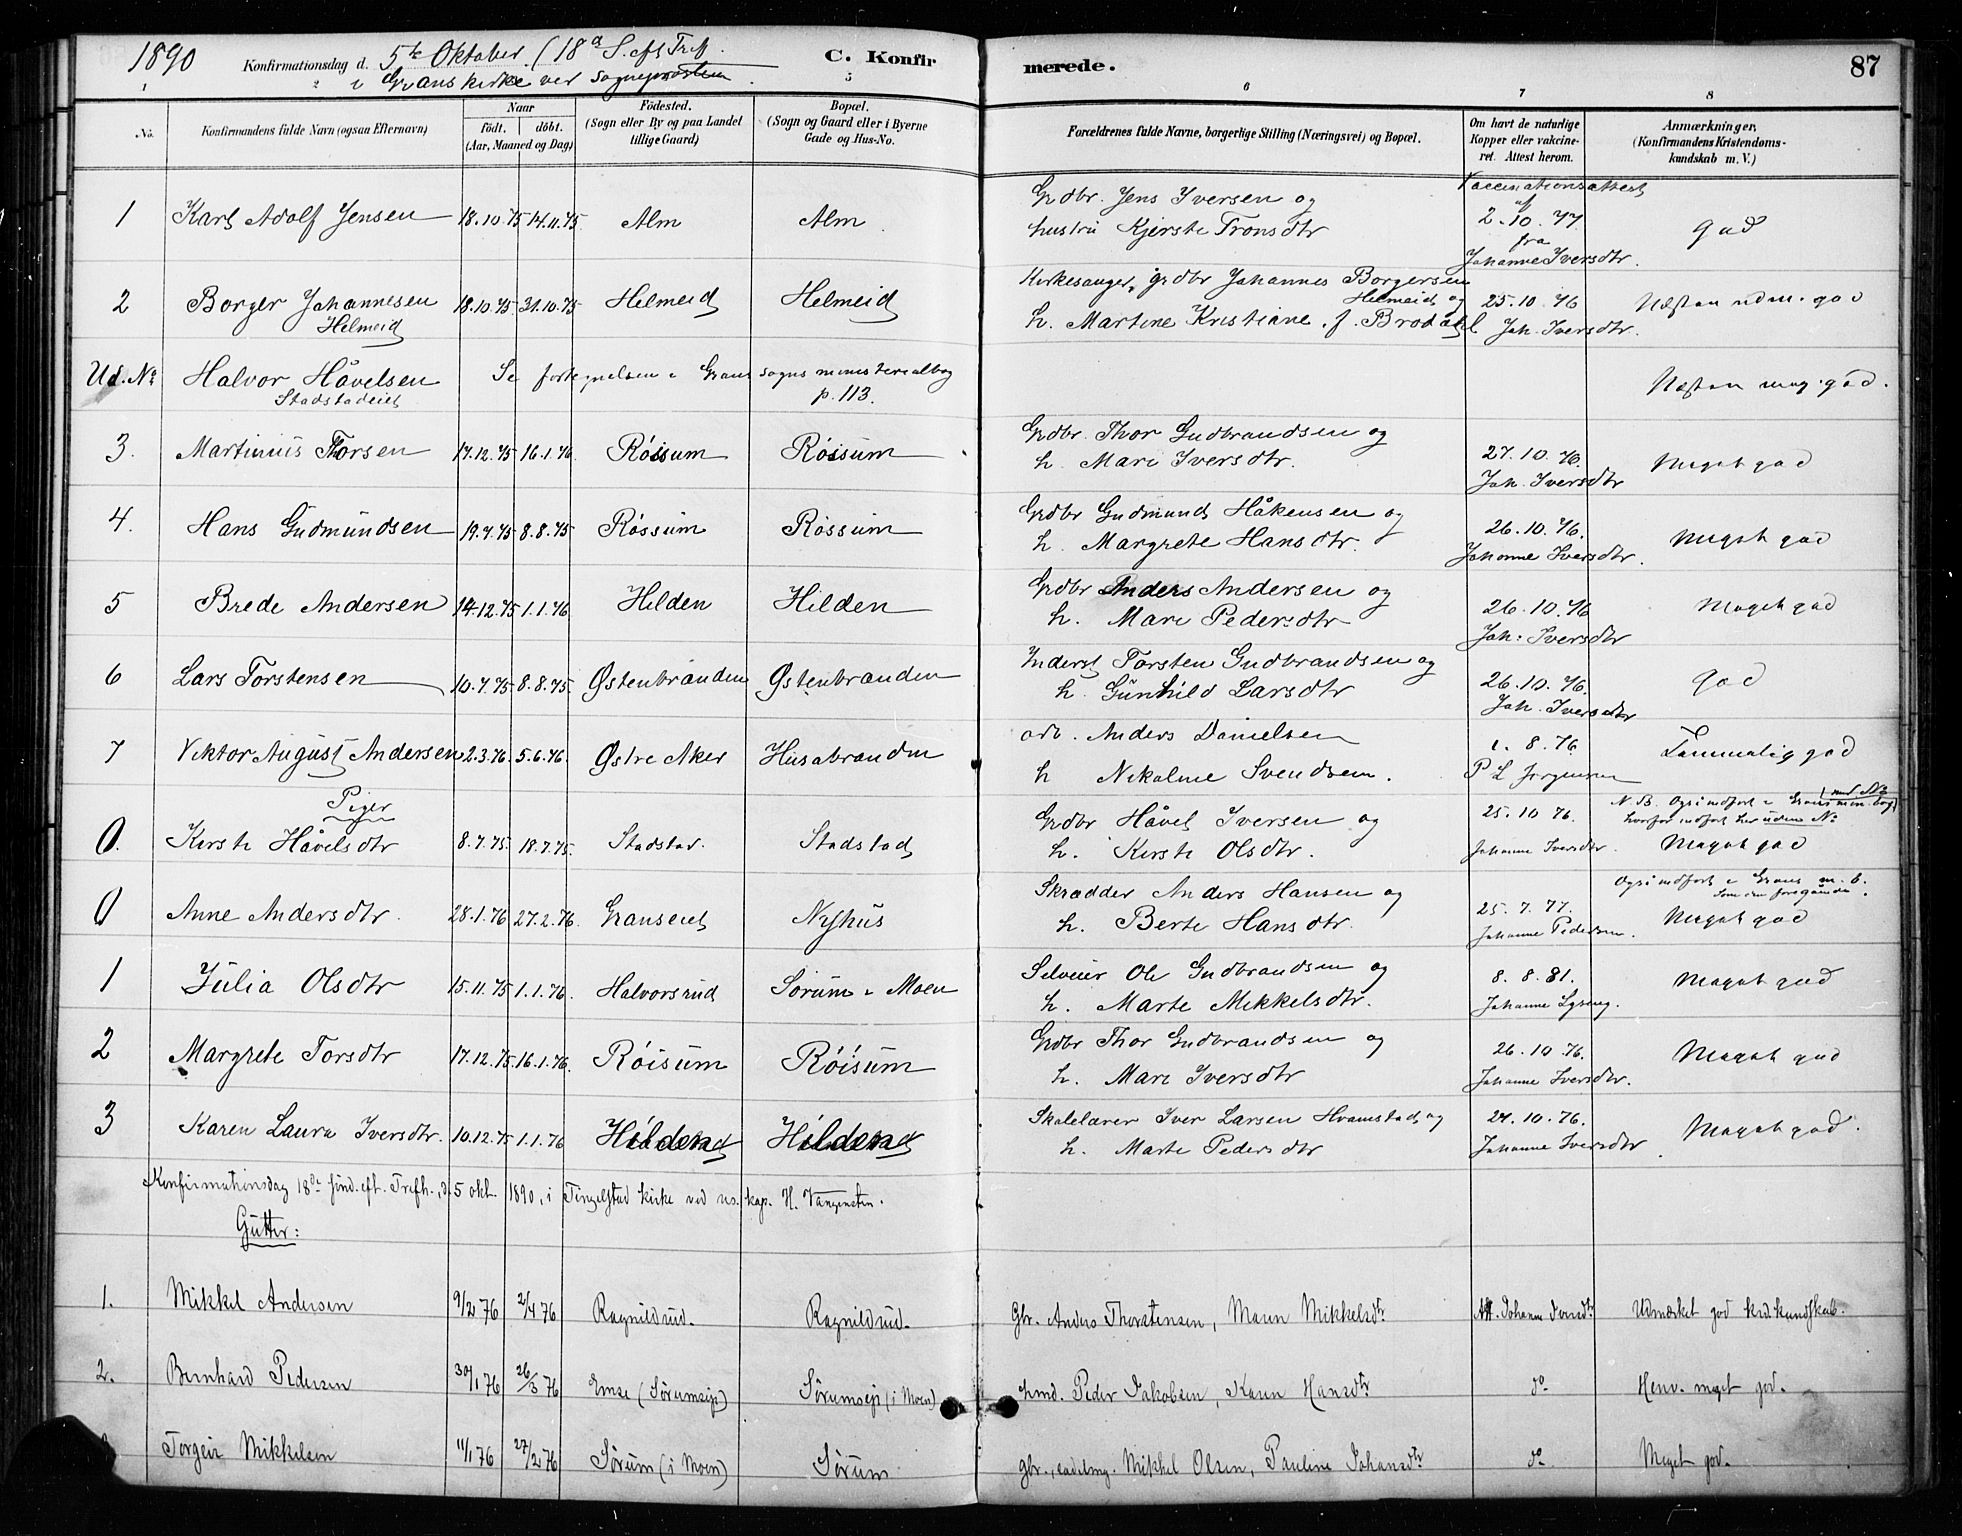 1890 Konfirmationsdag d. 5te Oktober. (18de S. eft. Tref. C. Konfirmerede. 87
i Grans kirke ved sogneprosten.
1 2 5 6 7 8
No. Konfirmandens fulde Navn (ogsaa Efternavn) Naar født. døbt. (Aar, Maaned og Dag) Födested. (Sogn eller By og paa Landet tillige Gaard) Bopæl. (Sogn og Gaard eller i Byerne Gade og Hus-No. Forældrenes fulde Navne, borgerlige Stilling (Næringsvei) og Bopæl. Om havt de naturlige Kopper eller vakcineret. Attest herom. Anmærkninger. (Konfirmandens Kristendomskundskab m. V.)
1 Karl Adolf Jensen 18.10.75 14.11.75. Alm Alm Grdbr. Jens Iversen og hustru Kjerste Tronsdtr Vaccinationsattest af 2.10.77 fra Johanne Iversdtr. god
2 Borger Johannesen Helmeid 18.10.75 31.10.75 Helmeid Helmeid Kirkesanger, grdbr Johannes Borgersen Helmeid og h. Martine Kristiane f. Brodahl 25.10.76 Joh. Iversdtr. Næsten udm. god
Ud. No Halvor Håvelsen Stadstadeiet Se fortegnelsen i Grans sogns ministerialbog p. 113. Næsten meg. god.
3. Martinius Thorsen 17.12.75 16.1.76 Röisum Röisum Grdbr. Thor Gudbrandsen og h. Mari Iversdtr. 27.10.76. Joh. Iversdtr Meget god
4. Hans Gudmundsen 19.7.75 8.8.75 Røssum Røssum Grdbr Gudmund Håkensen og h. Margrete Hansdtr. 26.10.76. Johanne Iversdtr. Meget god
5 Brede Andersen 14.12.75 1.1.76 Hilden Hilden Grdbr Anders Andersen og h. Mari Pedersdtr 26.10.76 Joh: Iversdtr Meget god
6 Lars Torstensen 10.7.75 8.8.75. Østenbranden Østenbranden Inderst Torsten Gudbrandsen og h. Gunhild Larsdtr 26.10.76. Joh. Iversdtr god
7 Viktor August Andersen 2.3.76. 5.6.76. Østre Aker Husabranden arb. Anders Danielsen h Nikoline Svendsen. 1.8.76 P L Jørgensen Temmelig god
Piger
0. Kirste Håvelsdtr 8.7.75. 18.7.75. Stadstad. Stadstad Grdbr Håvel Iversen og h. Kirste Olsdtr. 25.10.76. Johanne Iversdtr. N.B. Ogsi indført i Grans min. bog) (med No hvorfor indført her uden No Meget god
0 Anne Andersdtr. 28.1.76 27.2.76. Granseiet Nyhus Skrædder Anders Hansen og h. Berte Hansdtr. 25.7.77. Johanne Pedersen. Ogsi indført i Grans m. b. som den foregående. Meget god
1 Julia Olsdtr 15.11.75 1.1.76. Halvorsrud Sørum i Moen Selveier Ole Gudbrandsen og h. Marte Mikkelsdtr. 8.8.81. Johanne Meget god
2 Margrete Torsdtr 17.12.75 16.1.76. Röisum Röisum Grdbr Thor Gudbrandsen og h. Mari Iversdtr 26.10.76. Johanne Iversdtr. Meget god
3 Karen Laura Iversdtr. 10.12.75 1.1.76 Hilden Hilden Skolelærer Iver Larsen Hvamstad og h. Marte Pedersdtr 24.10.76. Johanne Iversdtr Meget god.
Konfirmationsdag 18de sønd. eft. Trefh., d. 5 okt. 1890, i Tingelstad kirke ved res. kap. H. Vangensten.
Gutter:
1. Mikkel Andersen 9/2 76 2/4 76 Ragnildrud. Ragnildrud. Gbr. Anders Thorstensen, Maren Mikkelsdtr Att. Johanne Iversdtr Udmærket god krd. kundskab.
2. Bernhard Pedersen 30/1 76 26/3 76 Emse (Sørumseje) Sørumseje (i Moen) hmd. Peder Jakobsen, Karen Hansdtr do Henv. meget god.
Torgeir Mikkelsen 11/1 76 27/2 76 Sørum (i Moen) Sørum gbr., sadelmg. Mikkel Olsen, Pauline Johansdtr do Meget god.